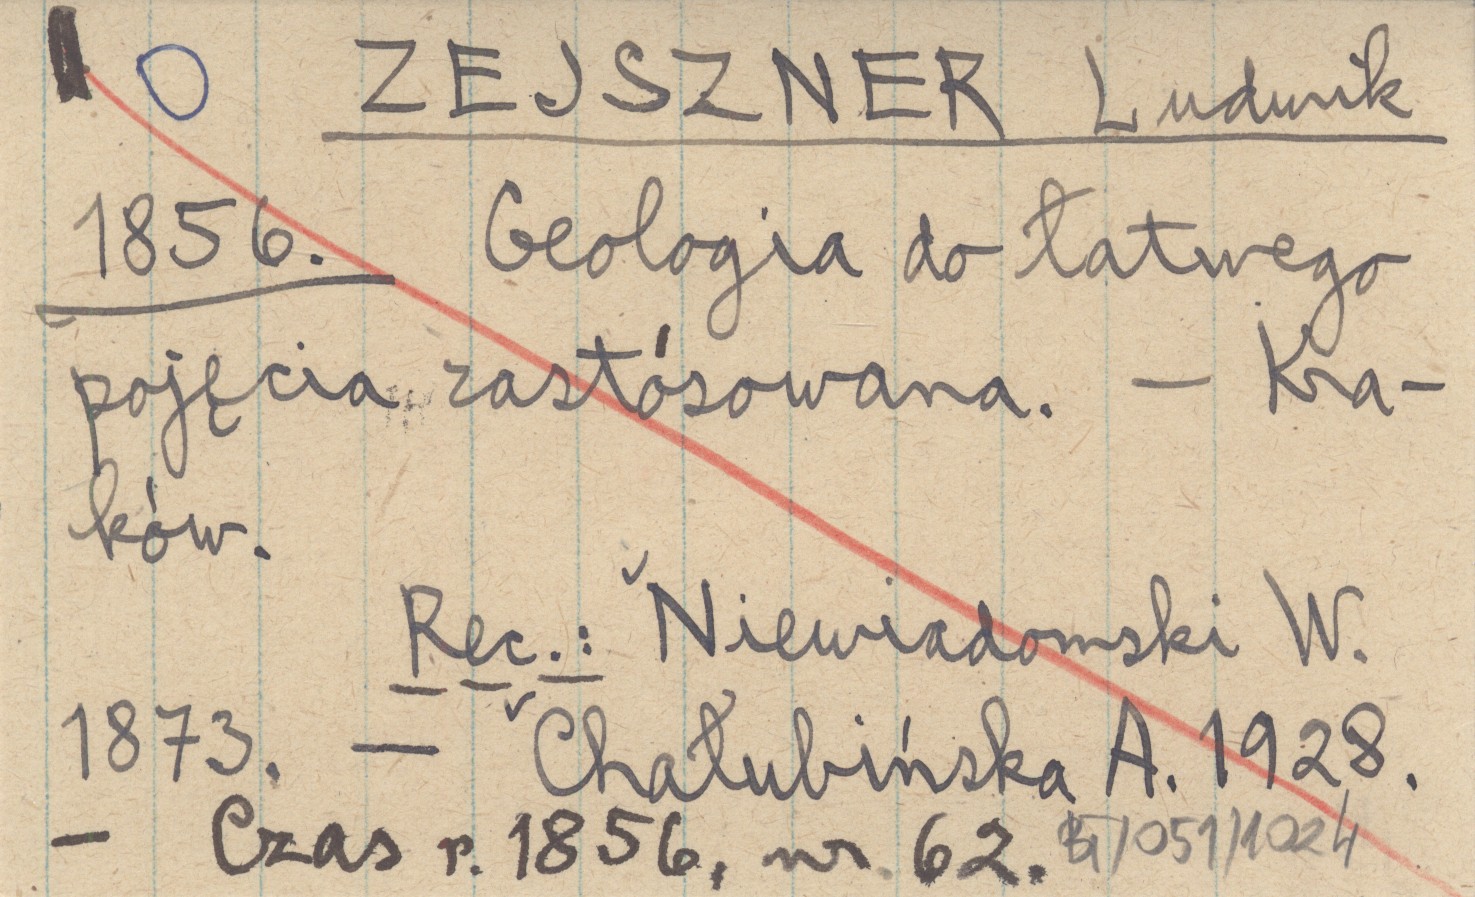 ZEJSZNER Ludwik
1856. Geologia do łatwego
pojęcia zastósowana. — Kra-
ków.
Rec.: Niewiadomski W.
1873. — Chałubińska A. 1928.
— Czas r. 1856, nr 62. /051/1024